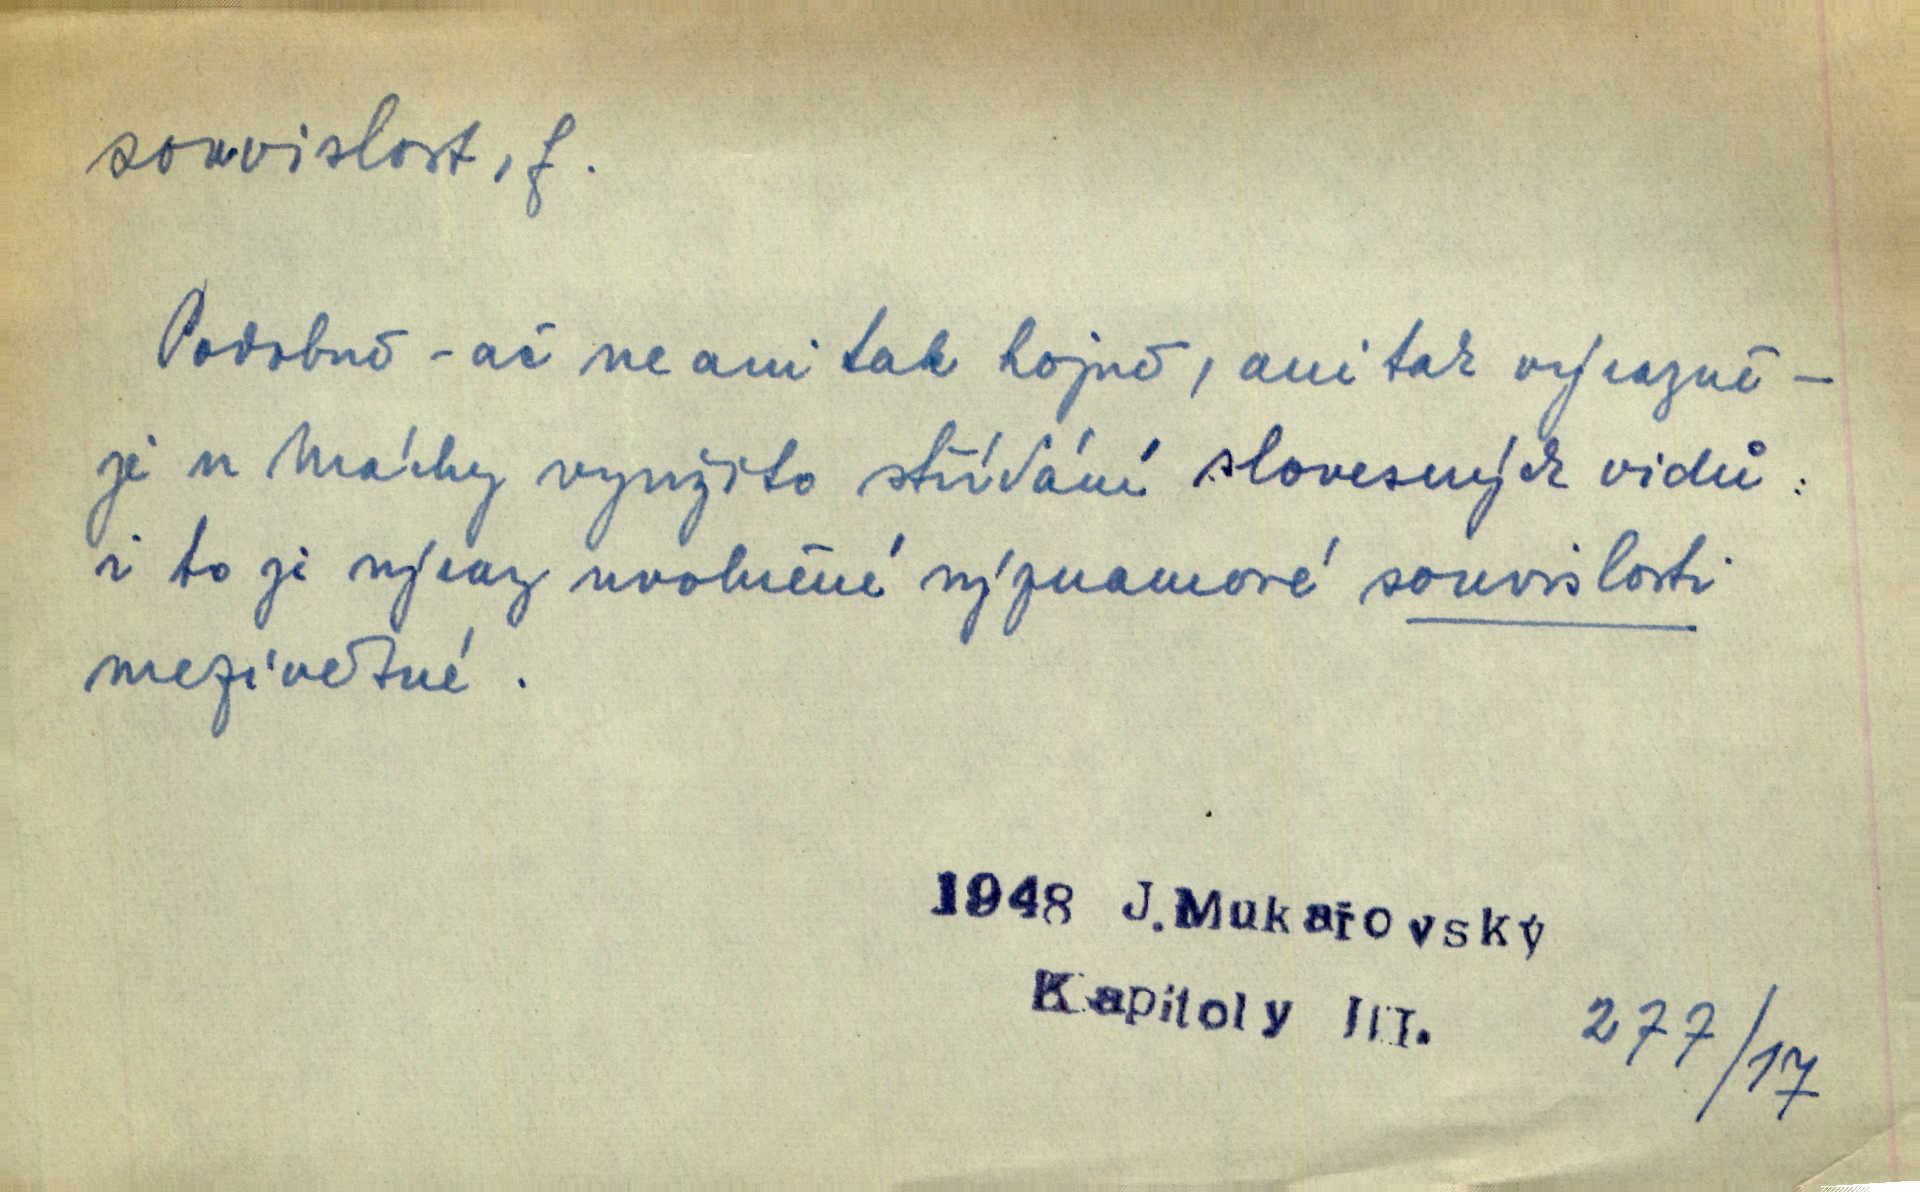 souvislost, f.
Podobně - ač ne ani tak hojně, ani tak výrazně -
je u Máchy využito střídání slovesných vidů:
i to je výraz uvolněné významové souvislosti
mezivětné.
1948 J.Mukařovský
Kapitoly III.
277/17